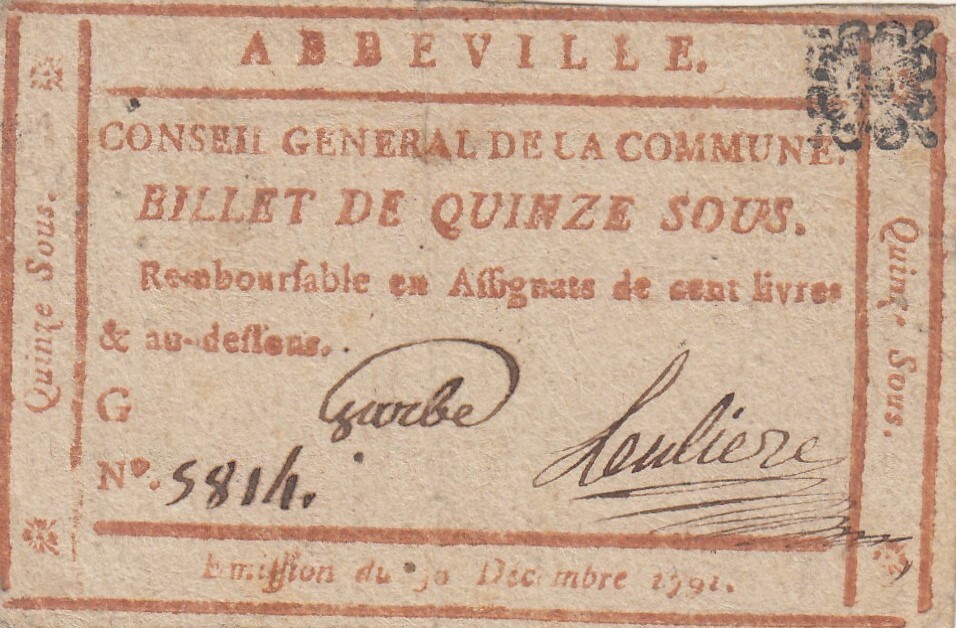 ABBEVILLE.
CONSEIL GENERAL DE LA COMMUNE.
BILLET DE QUINZE SOUS.
Rembourſable en Aſſignats de cent livres
& au-deſſous.
G
Garbe
Leuliere
Nº. 5814.
Emiſſion du 30 Décembre 1791.
Quinze Sous.
Quinze Sous.